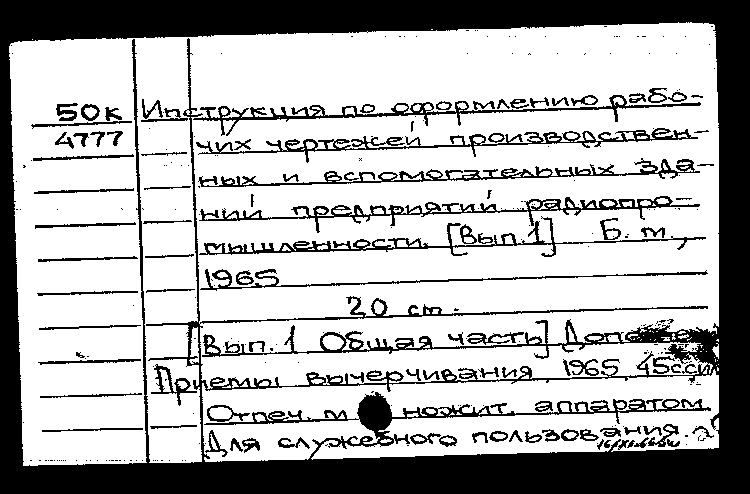 50к Инструкция по оформлению рабо-
4777 чих чертежей производствен-
ных и вспомогательных зда-
ний предприятий радиопро-
мышленности. [Вып.1] Б. м.,
1965
20 см.
[Вып. 1 Общая часть]
Приемы вычерчивания 1965 45с
Отпеч. м ножит. аппаратом.
Для служебного пользования.